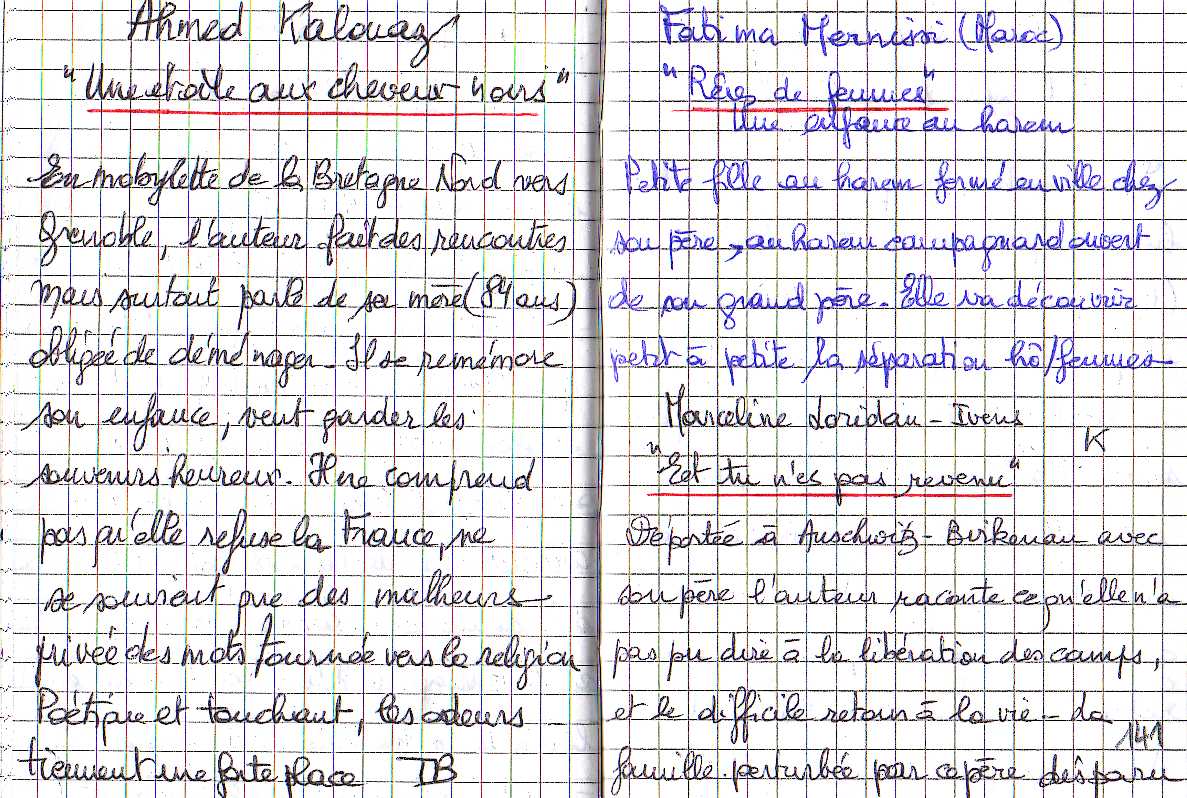 Ahmed Kalouaz
"Une étoile aux cheveux noirs"
En mobylette de la Bretagne Nord vers
Grenoble, l'auteur fait des rencontres
mais surtout parle de sa mère (84 ans)
obligée de déménager. Il se remémore
son enfance, veut garder les
souvenirs heureux. Il ne comprend
pas qu'elle refuse la France, ne
se souvient que des malheurs
privée des mots / tournée vers la religion
Poétique et touchant, les odeurs
tiennent une forte place DB
Fatima Mernissi (Maroc)
"Rêves de femmes"
Une enfance au harem
Petite fille au harem fermé en ville chez
son père, au harem campagnard ouvert
de son grand père. Elle va découvrir
petit à petite la séparation hô/femmes
Marceline Loridan-Ivens
K
"Et tu n'es pas revenu"
Déportée à Auschwitz-Birkenau avec
son père l'auteur raconte ce qu'elle n'a
pas pu dire à la libération des camps,
et le difficile retour à la vie - La
141
famille perturbée par ce père disparu